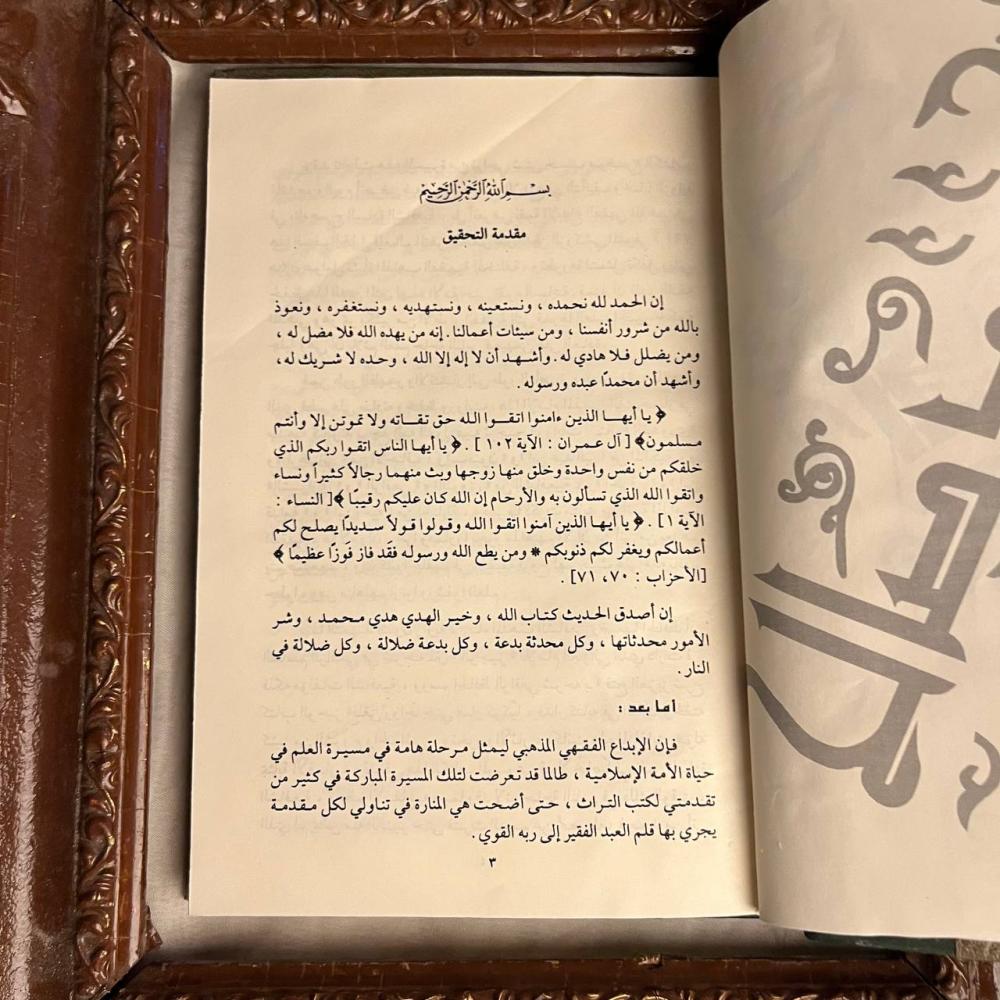 بسم الله الرحمن الرحيم
مقدمة التحقيق
إن الحمد لله نحمده ، ونستعينه ، ونستهديه ، ونستغفره ، ونعوذ
بالله من شرور أنفسنا ، ومن سيئات أعمالنا. إنه من يهده الله فلا مضل له ،
ومن يضلل فلا هادي له . وأشهد أن لا إله إلا الله ، وحده لا شريك له ،
وأشهد أن محمدًا عبده ورسوله .
﴿ يا أيها الذين ءامنوا اتقوا الله حق تقاته ولا تموتن إلا وأنتم
مسلمون﴾ [ آل عمران : الآية ١٠٢ ] . ﴿ يا أيها الناس اتقوا ربكم الذي
خلقكم من نفس واحدة وخلق منها زوجها وبث منهما رجالاً كثيراً ونساء
واتقوا الله الذي تسألون به والأرحام إن الله كان عليكم رقيبًا ﴾[ النساء :
الآية ١] . ﴿ يا أيها الذين آمنوا اتقوا الله وقولوا قولاً سديدًا يصلح لكم
أعمالكم ويغفر لكم ذنوبكم * ومن يطع الله ورسوله فقد فاز فوزًا عظيمًا ﴾
[الأحزاب : ٧٠، ٧١] .
إن أصدق الحديث كتاب الله ، وخير الهدي هدي محمد ، وشر
الأمور محدثاتها ، وكل محدثة بدعة ، وكل بدعة ضلالة ، وكل ضلالة في
النار .
أما بعد :
فإن الإبداع الفقهي المذهبي ليمثل مرحلة هامة في مسيرة العلم في
حياة الأمة الإسلامية ، طالما قد تعرضت لتلك المسيرة المباركة في كثير من
تقدمتي لكتب التراث ، حتى أضحت هي المنارة في تناولي لكل مقدمة
يجري بها قلم العبد الفقير إلى ربه القوي .
٣